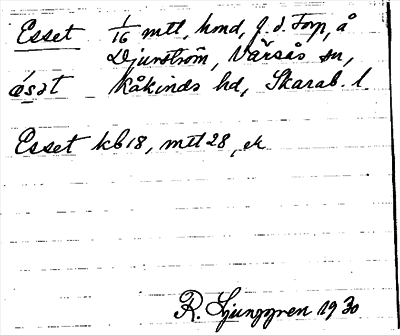 Esset 1/16 mtl, kmd, f.d. torp, å
Djurström, Värsås sn,
ä́sət Kåkinds hd, Skarab. l.
Esset kb 18, mtl 28, ek
R. Ljunggren 1930